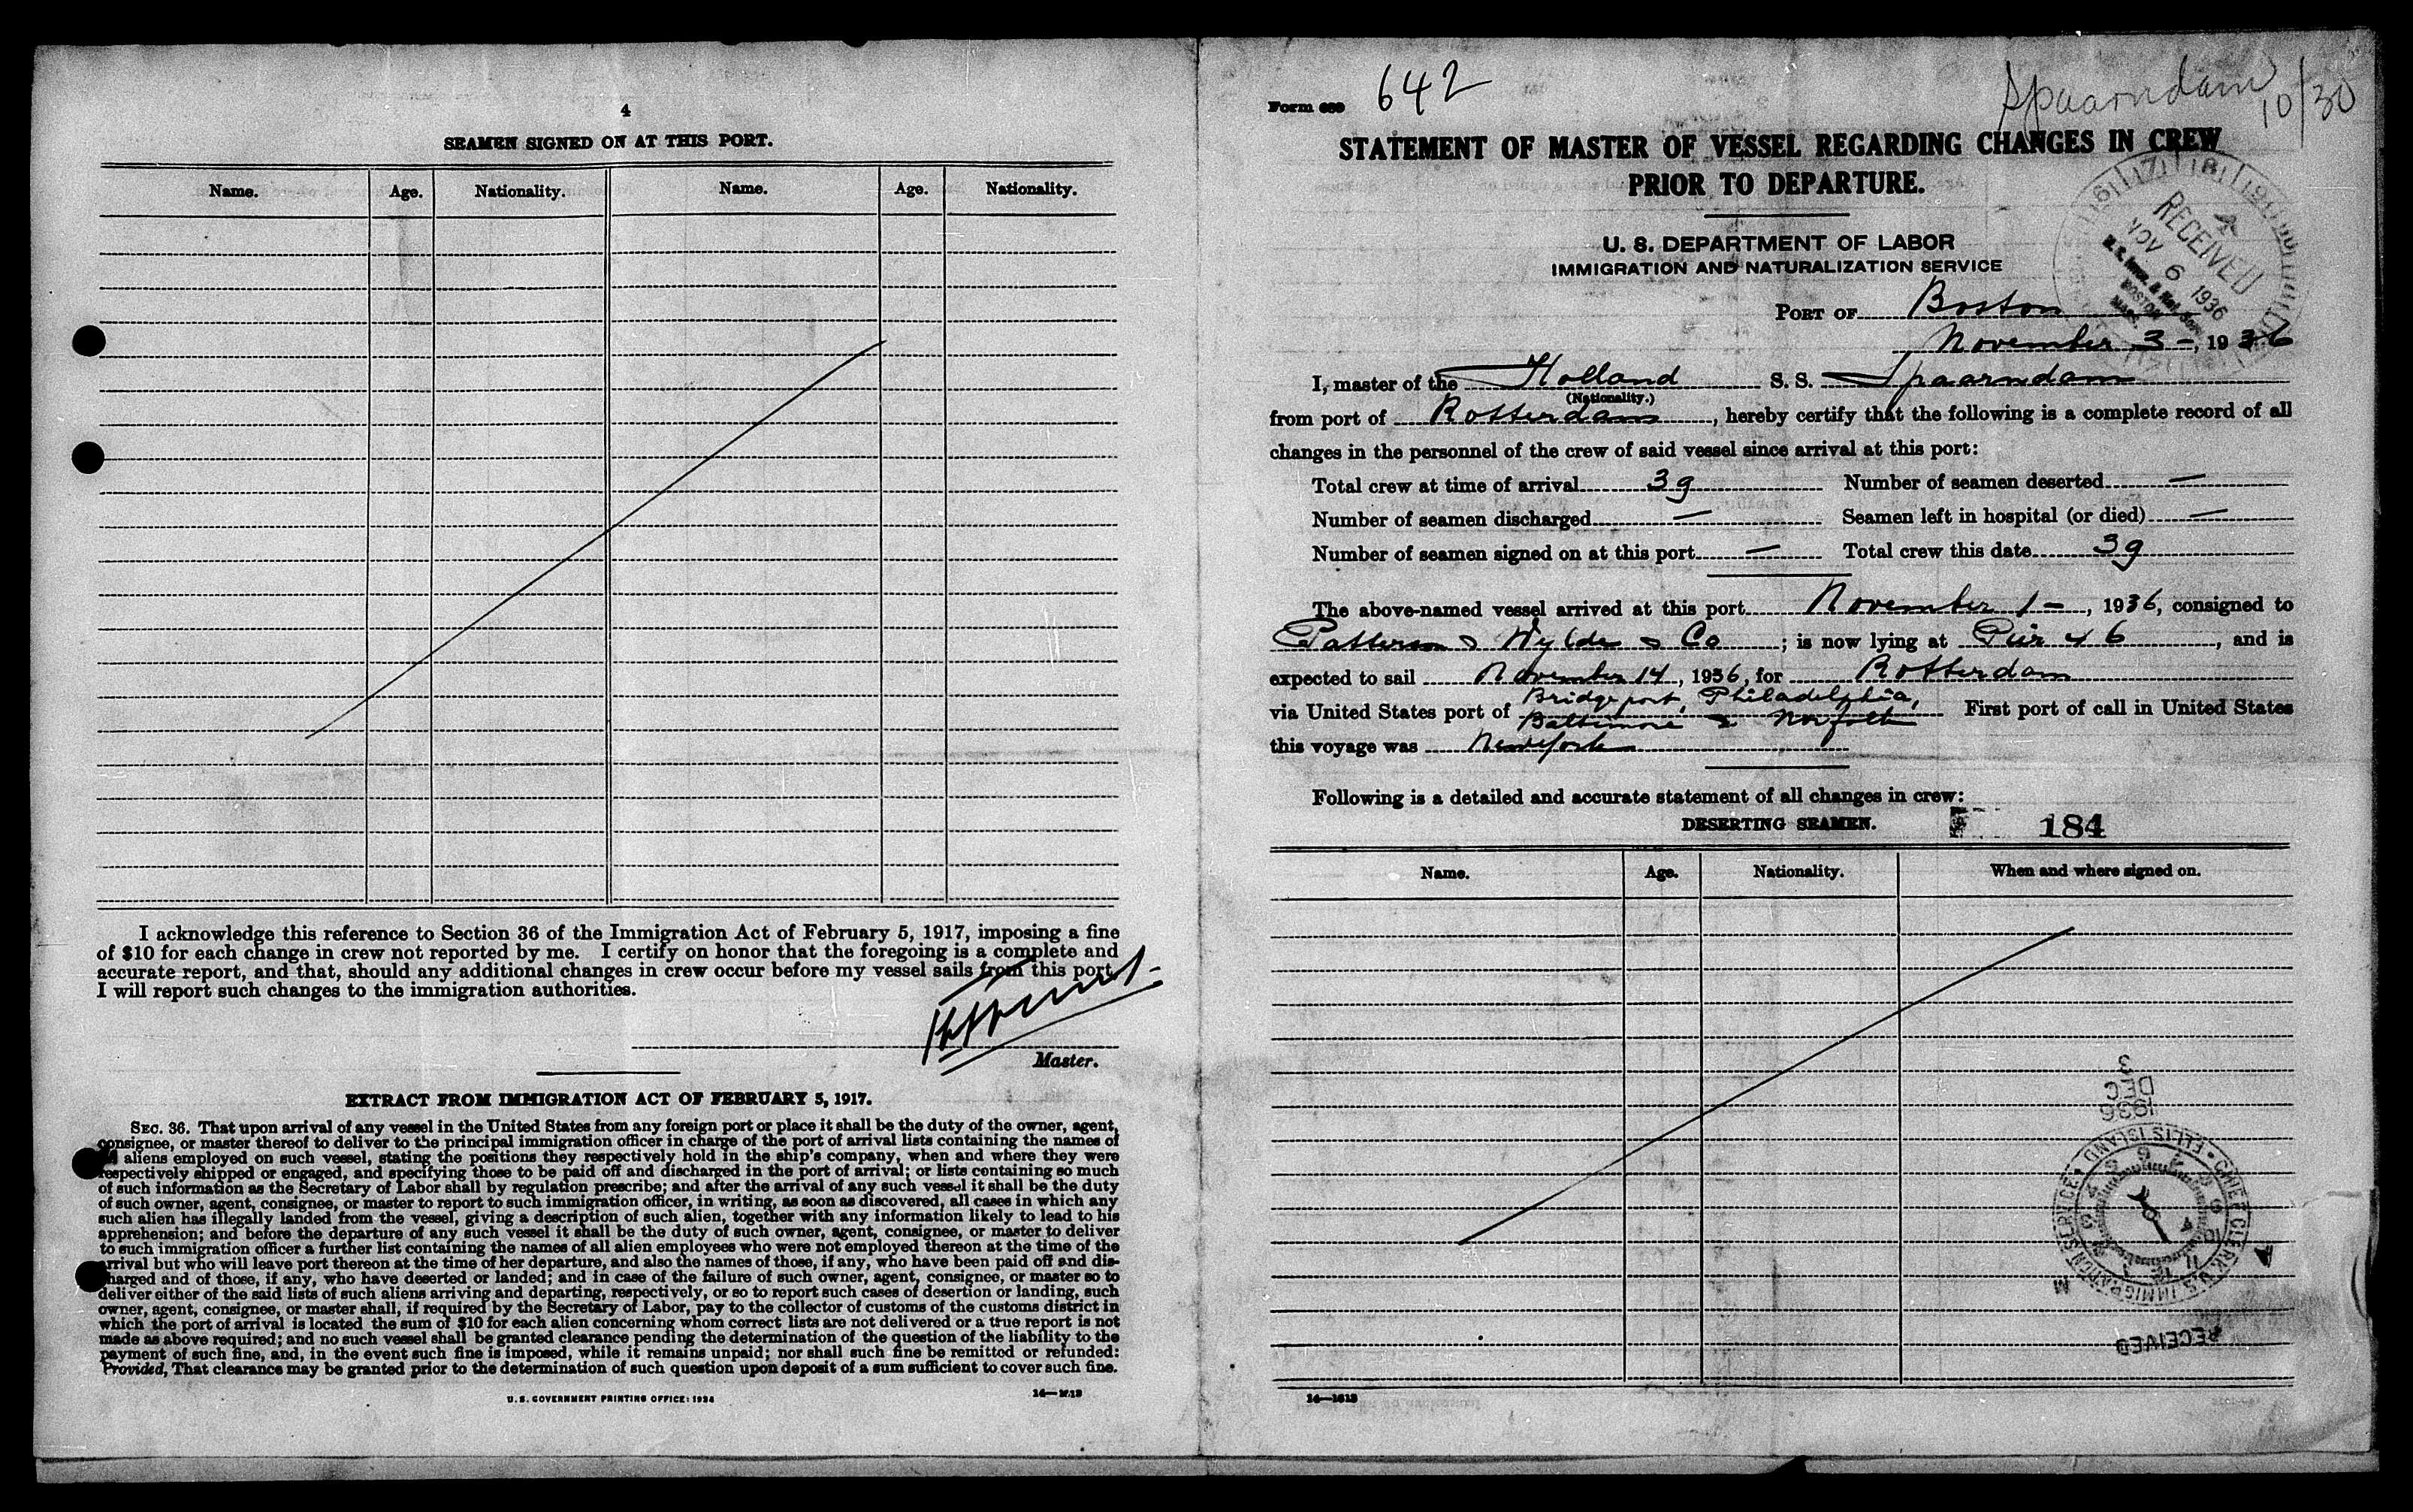 4
SEAMEN SIGNED ON AT THIS PORT.
Name. Age. Nationality. Name. Age. Nationality.
I acknowledge this reference to Section 36 of the Immigration Act of February 5, 1917, imposing a fine
of $10 for each change in crew not reported by me. I certify on honor that the foregoing is a complete and
accurate report, and that, should any additional changes in crew occur before my vessel sails from this port,
I will report such changes to the immigration authorities.
Master.
EXTRACT FROM IMMIGRATION ACT OF FEBRUARY 5, 1917.
SEC. 36. That upon arrival of any vessel in the United States from any foreign port or place it shall be the duty of the owner, agent,
consignee, or master thereof to deliver to the principal immigration officer in charge of the port of arrival lists containing the names of
aliens employed on such vessel, stating the positions they respectively hold in the ship's company, when and where they were
respectively shipped or engaged, and specifying those to be paid off and discharged in the port of arrival; or lists containing so much
of such information as the Secretary of Labor shall by regulation prescribe; and after the arrival of any such vessel it shall be the duty
of such owner, agent, consignee, or master to report to such immigration officer, in writing, as soon as discovered, all cases in which any
such alien has illegally landed from the vessel, giving a description of such alien, together with any information likely to lead to his
apprehension; and before the departure of any such vessel it shall be the duty of such owner, agent, consignee, or master to deliver
to such immigration officer a further list containing the names of all alien employees who were not employed thereon at the time of the
arrival but who will leave port thereon at the time of her departure, and also the names of those, if any, who have been paid off and dis-
charged and of those, if any, who have deserted or landed; and in case of the failure of such owner, agent, consignee, or master so to
deliver either of the said lists of such aliens arriving and departing, respectively, or so to report such cases of desertion or landing, such
owner, agent, consignee, or master shall, if required by the Secretary of Labor, pay to the collector of customs of the customs district in
which the port of arrival is located the sum of $10 for each alien concerning whom correct lists are not delivered or a true report is not
made as above required; and no such vessel shall be granted clearance pending the determination of the question of the liability to the
payment of such fine, and, in the event such fine is imposed, while it remains unpaid; nor shall such fine be remitted or refunded:
Provided, That clearance may be granted prior to the determination of such question upon deposit of a sum sufficient to cover such fine.
U. S. GOVERNMENT PRINTING OFFICE: 1934
Form 642
Spaarndam 10/30
STATEMENT OF MASTER OF VESSEL REGARDING CHANGES IN CREW
PRIOR TO DEPARTURE.
U. S. DEPARTMENT OF LABOR
IMMIGRATION AND NATURALIZATION SERVICE
RECEIVED
NOV 6 1936
BOSTON
MASS.
PORT OF Boston
November 3 -, 1936
I, master of the Holland S. S. Spaarndam
(Nationality.)
from port of Rotterdam, hereby certify that the following is a complete record of all
changes in the personnel of the crew of said vessel since arrival at this port:
Total crew at time of arrival 39 Number of seamen deserted —
Number of seamen discharged — Seamen left in hospital (or died) —
Number of seamen signed on at this port — Total crew this date 39
The above-named vessel arrived at this port November 1 -, 1936, consigned to
Patterson & Wylde & Co; is now lying at Pier 46, and is
expected to sail November 14, 1936, for Rotterdam
Bridgeport, Philadelphia,
via United States port of Baltimore & Norfolk First port of call in United States
this voyage was Newyork
Following is a detailed and accurate statement of all changes in crew:
DESERTING SEAMEN. 184
Name. Age. Nationality. When and where signed on.
1936
DEC
3
CHIEF CLERK U.S. IMMIGRATION SERVICE • ELLIS ISLAND
RECEIVED
14—1613